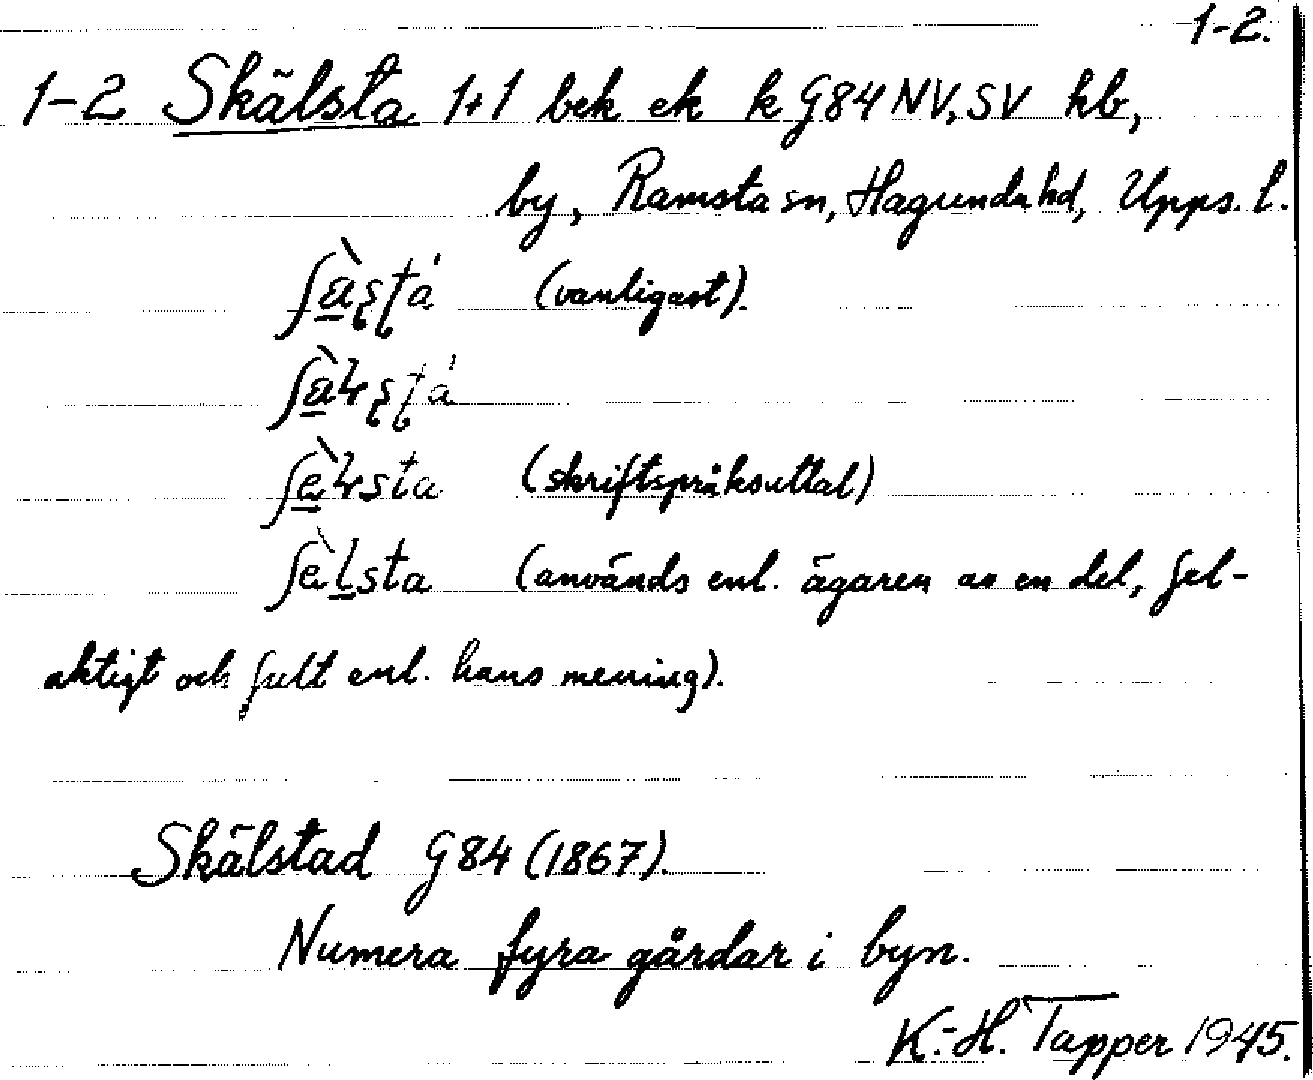 1-2.
1-2 Skälsta 1+1 bek ek k G84 NV, SV hb,
by, Ramsta sn, Hagunda hd, Upps. l.
(vanligast).
(skriftspråksuttal)
(används enl. ägaren av en del, fel-
aktigt och fult enl. hans mening).
Skälstad G84 (1867).
Numera fyra gårdar i byn.
K.-H. Tapper 1945.